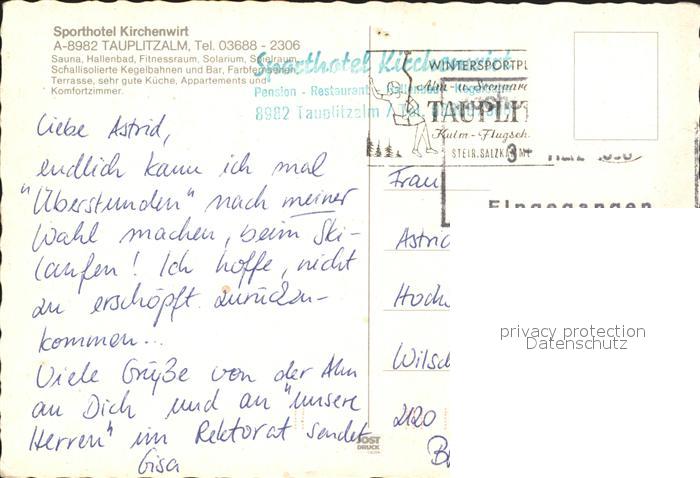 Sporthotel Kirchenwirt
A-8982 TAUPLITZALM, Tel. 03688 - 2306
Sauna, Hallenbad, Fitnessraum, Solarium, Spielraum,
Schallisolierte Kegelbahnen und Bar, Farbfernsehen,
Terrasse, sehr gute Küche, Appartements und
Komfortzimmer.
Sporthotel Kirchenwirt
Pension - Restaurant - Hallenbad
8982 Tauplitzalm / Tel.
WINTERSPORTPL
Alm u.
TAUPLIT
Kulm - Flugsch
STEIR. SALZKAMME
Eingegangen
Liebe Astrid,
endlich kann ich mal
"Überstunden" nach meiner
Wahl machen, beim Ski-
laufen! Ich hoffe, nicht
zu erschöpft zurückzu-
kommen...
Viele Grüße von der Alm
an Dich und an "unsere
Herren" im Rektorat sendet
Gisa
Frau
Astrid
Hoch
Wilsch
2120
POST
DRUCK
privacy protection
Datenschutz